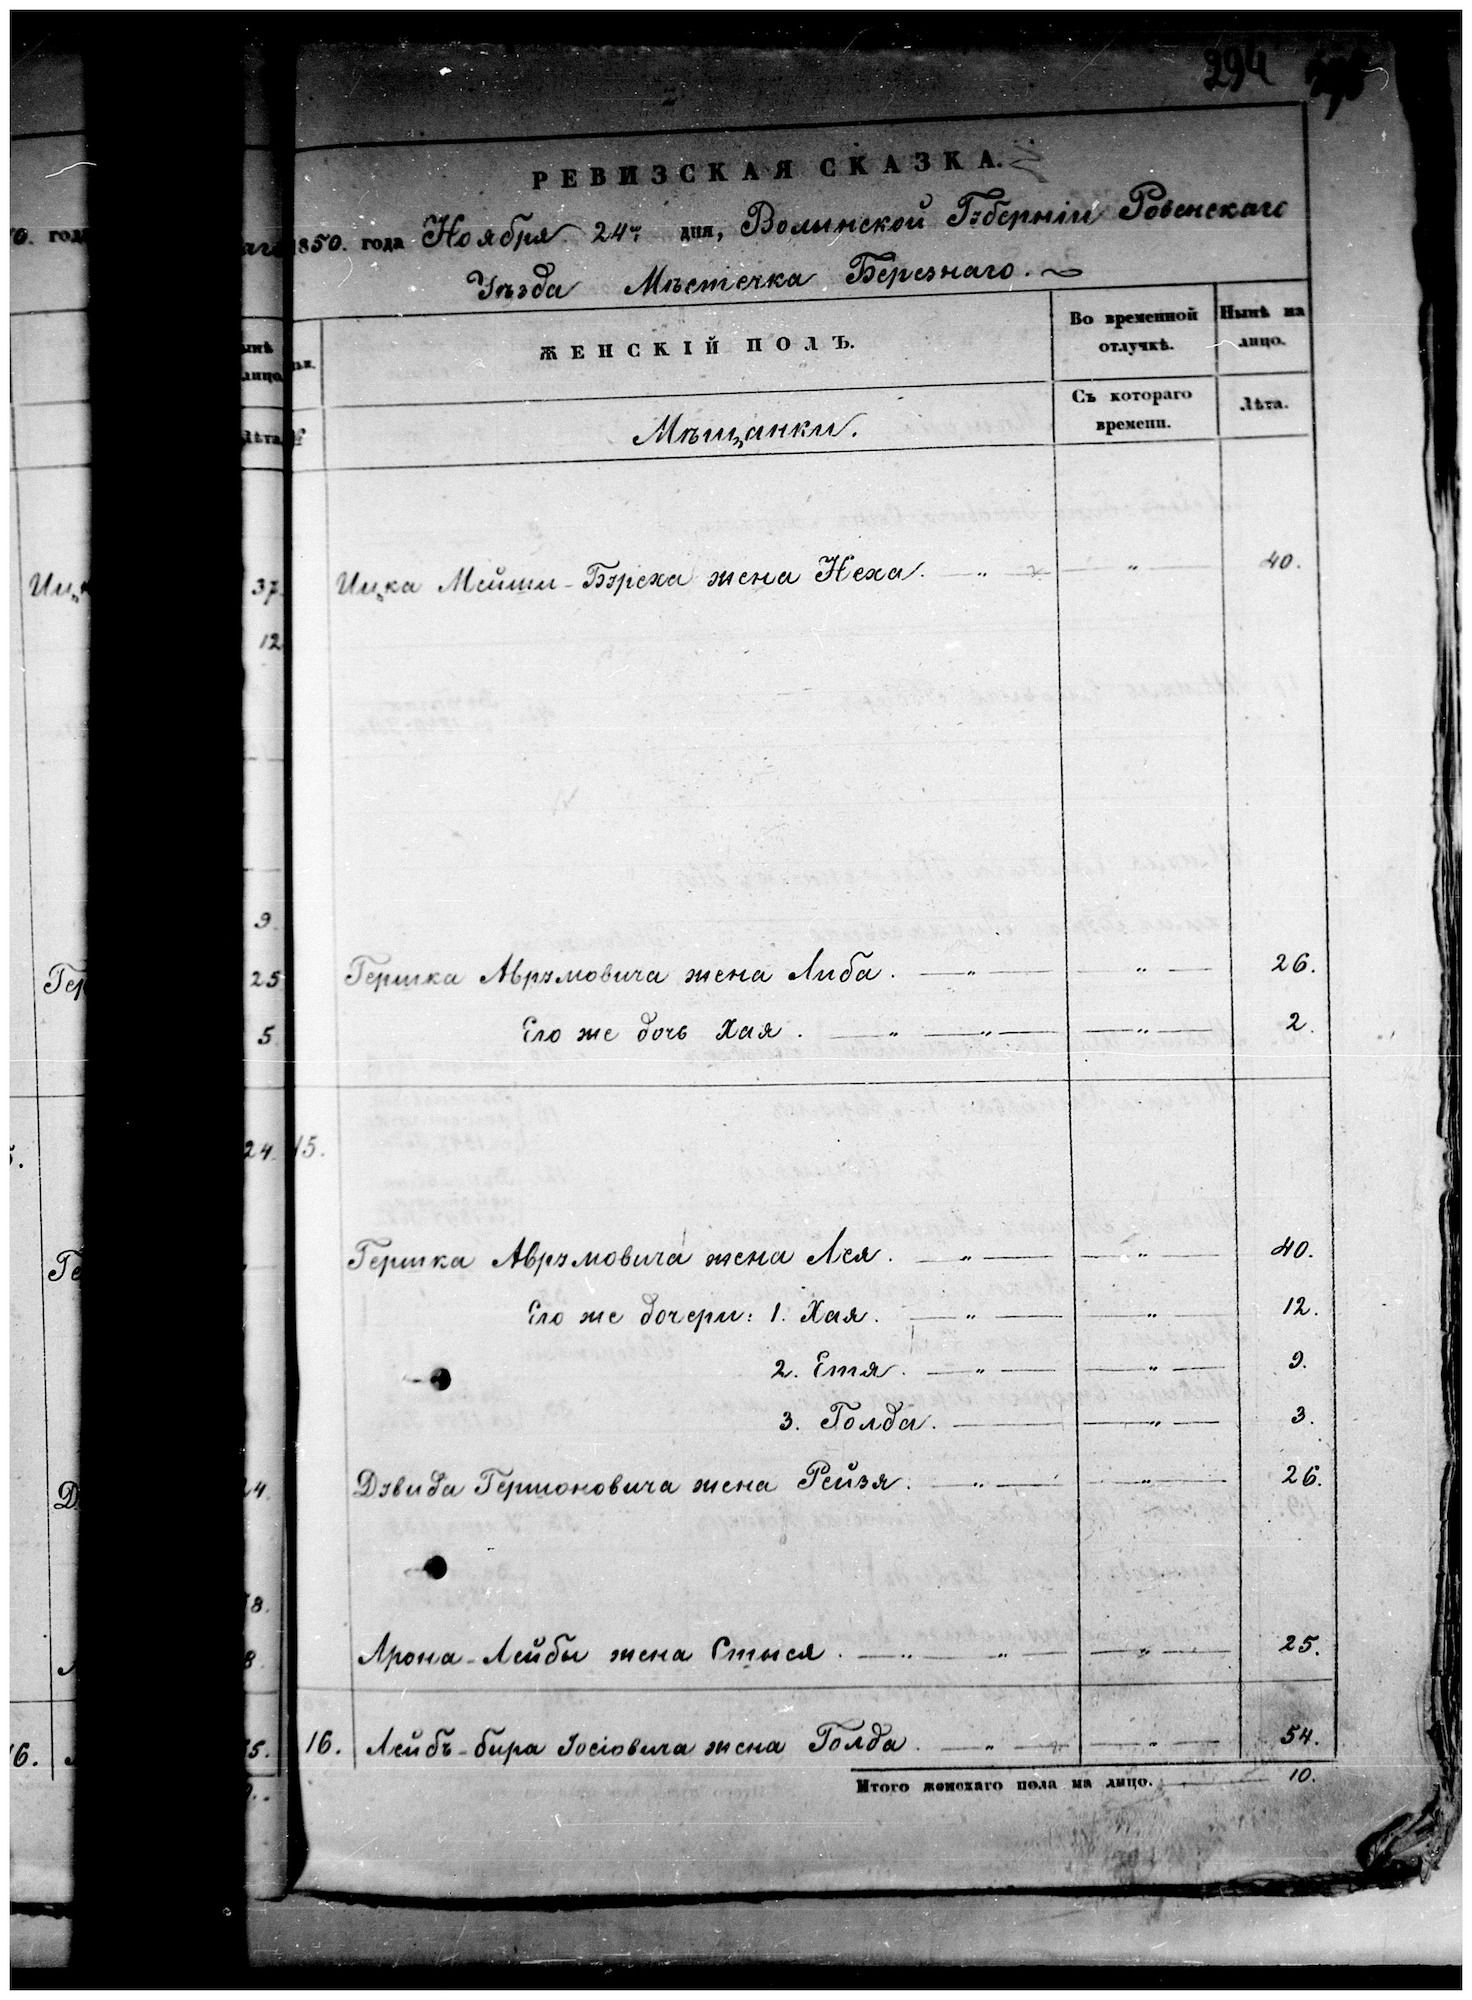 294
РЕВИЗСКАЯ СКАЗКА.
1850. года Ноября 24го дня, Волынской Губерніи Ровенскаго
Уѣзда Мѣстечка Березнаго.
ЖЕНСКІЙ ПОЛЪ.
Во временной отлучкѣ.
Нынѣ на лицо.
Съ котораго времени.
Лѣта.
№
Мѣщанки.
Ицка Мейши-Бэреха жена Неха. — „ — „ — 40.
Гершка Аврумовича жена Либа. — „ — „ — 26.
Его же дочь Хая. — „ — „ — „ — 2.
15.
Гершка Аврумовича жена Лея. — „ — „ — 40.
Его же дочери: 1. Хая. — „ — „ — 12.
2. Етя. — „ — „ — 9.
3. Голда. — „ — 3.
Дэвида Гершоновича жена Рейзя. — „ — „ — 26.
Арона-Лейбы жена Стыся. — „ — „ — „ — 25.
16. Лейбъ-бира Іосіовича жена Голда. — „ — „ — 54.
Итого женскаго пола на лицо. — 10.
года
Ицк
37.
12
9.
Гер
25
5.
24.
Ге
Д
24.
8.
16.